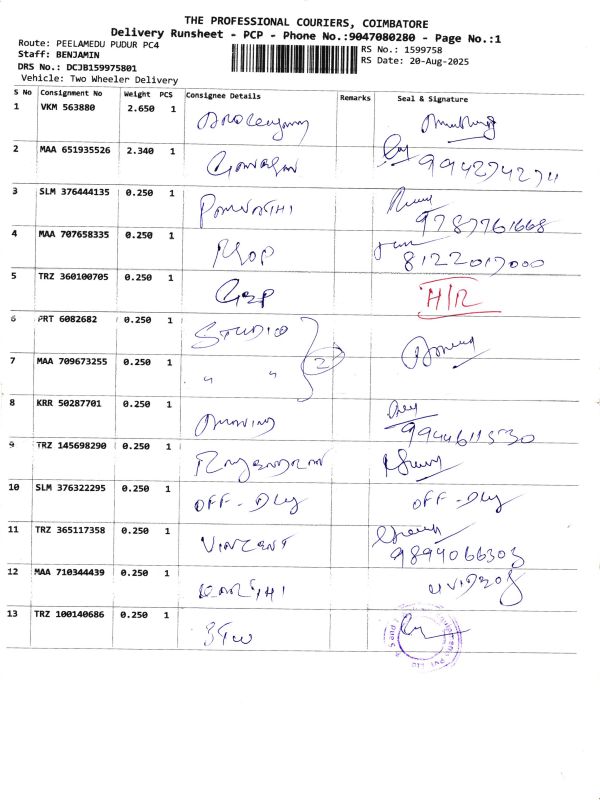 THE PROFESSIONAL COURIERS, COIMBATORE
Delivery Runsheet - PCP - Phone No.:9047080280 - Page No.:1
Route: PEELAMEDU PUDUR PC4
Staff: BENJAMIN
DRS No.: DCJB159975801
Vehicle: Two Wheeler Delivery
RS No.: 1599758
RS Date: 20-Aug-2025
S No Consignment No Weight PCS Consignee Details Remarks Seal & Signature
1 VKM 563880 2.650 1
2 MAA 651935526 2.340 1
3 SLM 376444135 0.250 1 PARVATHI 9787761668
4 MAA 707658335 0.250 1 8122017000
5 TRZ 360100705 0.250 1 H/R
6 PRT 6082682 0.250 1 STUDIO
7 MAA 709673255 0.250 1 " " 2
8 KRR 50287701 0.250 1 9944611530
9 TRZ 145698290 0.250 1 RAJENDRAN
10 SLM 376322295 0.250 1 OFF-Dly OFF-Dly
11 TRZ 365117358 0.250 1 VINCENT 9894066303
12 MAA 710344439 0.250 1 KARTHI
13 TRZ 100140686 0.250 1